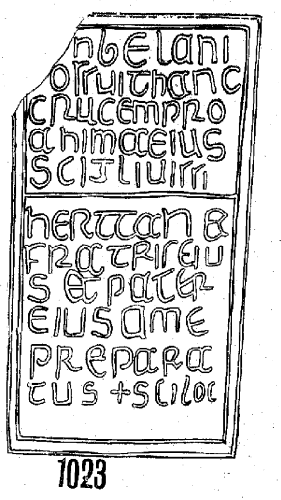 nbelani
ossuithanc
crucempro
animaeius
scitliuissi
herttan &
fratriseiu
s et pater
eius ame
prepara
tus + sciloc
1023